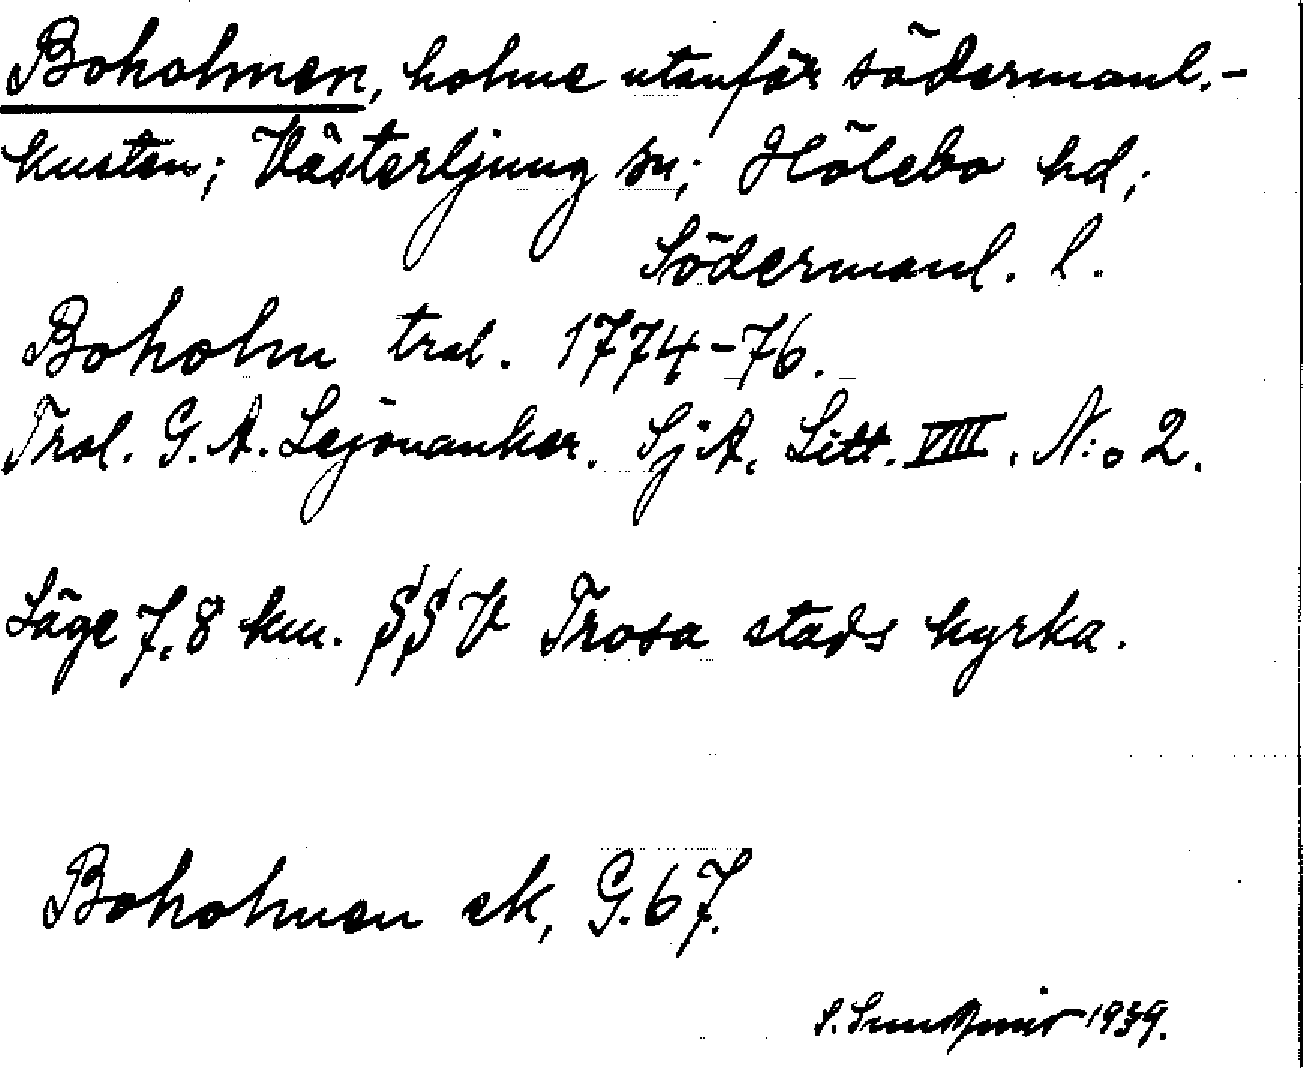 Boholmen, holme utanför södermanl.-
kusten; Västerljung sn; Hölebo hd;
Södermanl. l.
Boholm tral. 1774-76.
Tral. G. A. Lejonanker. SjA. Litt. VIII. N:o 2.
Läge 7,8 km. SSV Trosa stads kyrka.
Boholmen ek, G. 67.
S. Sundqvist 1939.